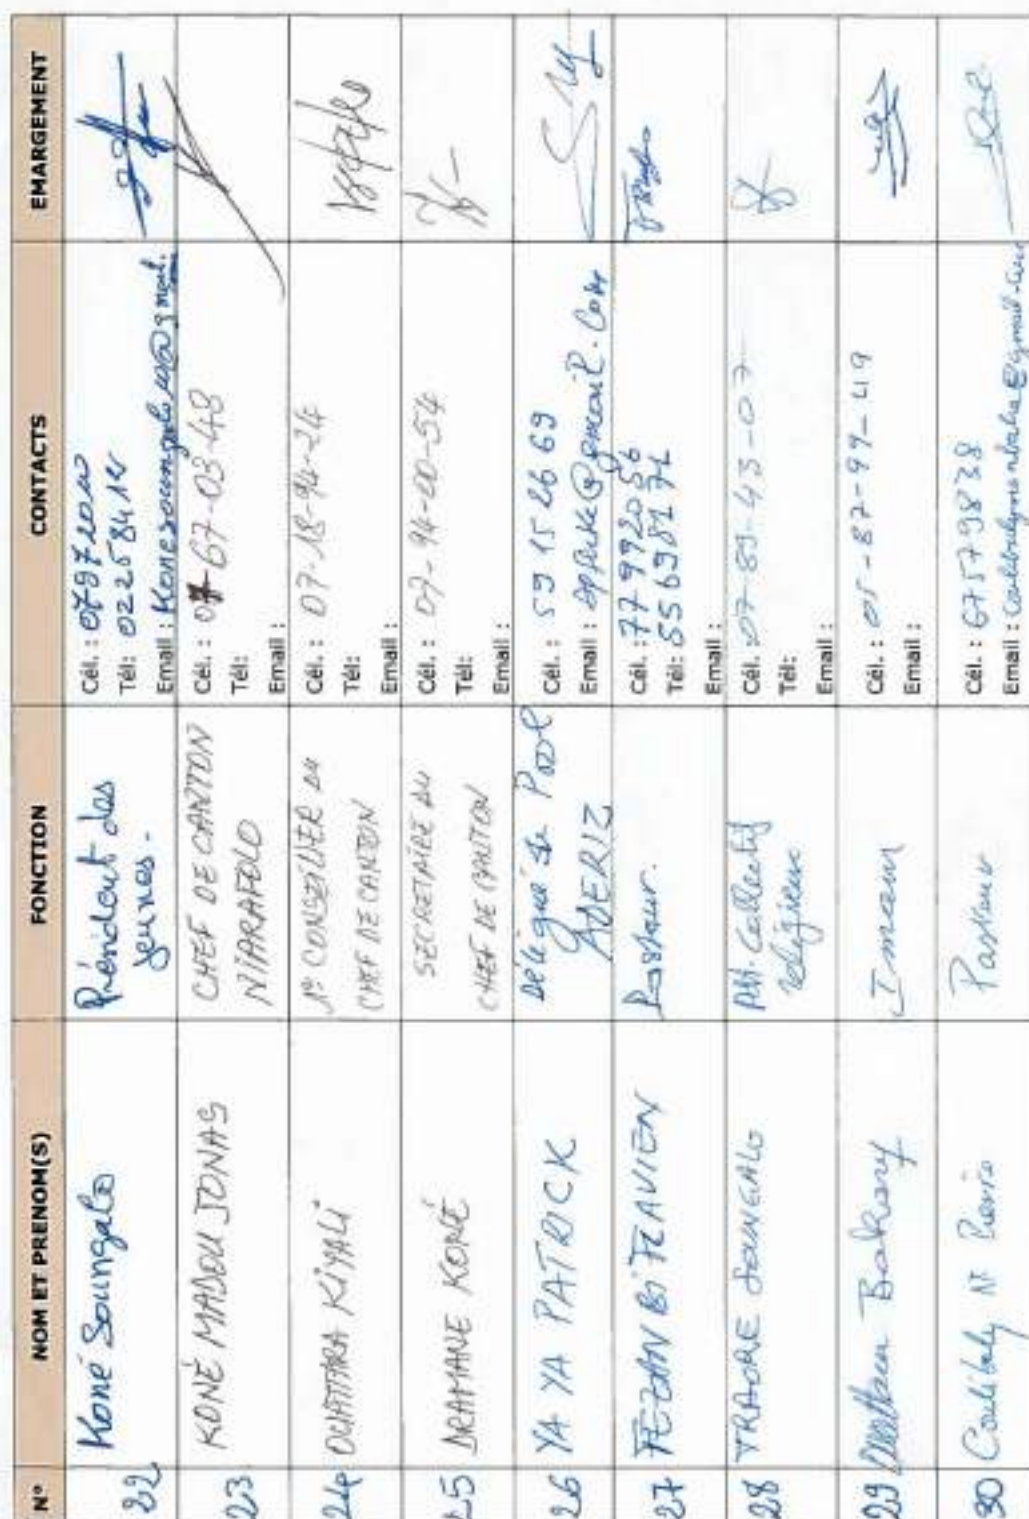 N° NOM ET PRENOM(S) FONCTION CONTACTS EMARGEMENT
22 Koné Soungalo Président des jeunes. Cél. : 
Tél: 02258414
Email :
23 KONÉ MADOU JONAS CHEF DE CANTON NIARAFOLO Cél. : 07-67-03-48
Tél:
Email :
24 OUATTARA KIYALI 1er CONSEILLER DU CHEF DE CANTON Cél. : 07-18-94-24
Tél:
Email :
25 DRAMANE KONÉ SECRETAIRE DU CHEF DE CANTON Cél. : 07-94-00-54
Tél:
Email :
26 YA YA PATRICK Délégué de Pool ADERIZ Cél. : 59 15 26 69
Email :
27 FEZAN BI FLAVIEN Pasteur. Cél. : 77992056
Tél: 55698171
Email :
28 TRAORE SOUNGALO Collectif religieux Cél. : 07-89-43-07
Tél:
Email :
29 Ouattara Bakary Imam Cél. : 05-87-99-49
Email :
30 Coulibaly N' Pierre Pasteur Cél. : 67579838
Email :